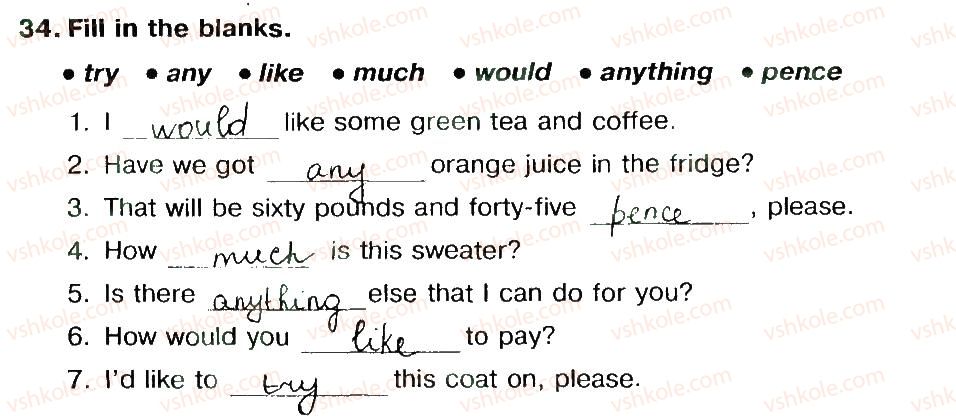 34. Fill in the blanks.
• try • any • like • much • would • anything • pence
1. I would like some green tea and coffee.
2. Have we got any orange juice in the fridge?
3. That will be sixty pounds and forty-five pence, please.
4. How much is this sweater?
5. Is there anything else that I can do for you?
6. How would you like to pay?
7. I'd like to try this coat on, please.